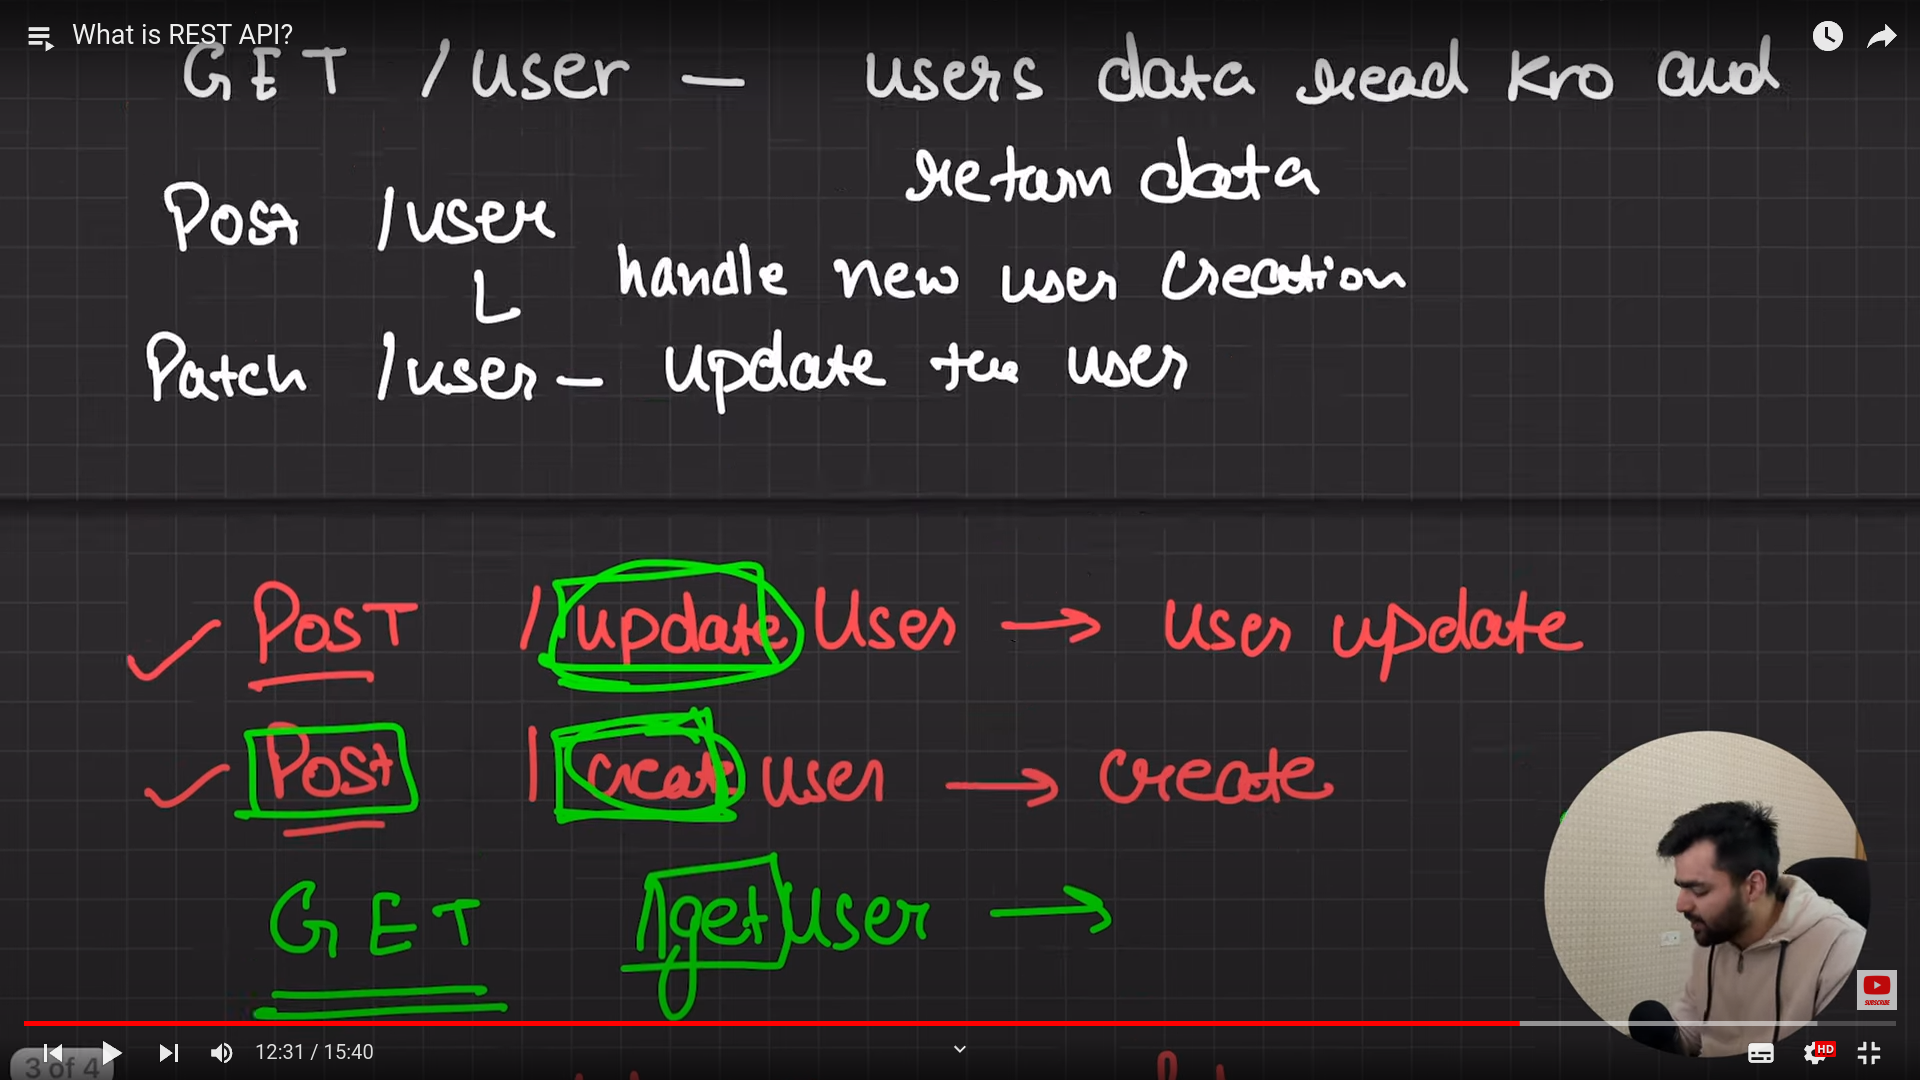 What is REST API?
GET /user — users data read kro and
return data
Post /user
handle new user creation
Patch /user — update the user
POST /update User → user update
Post /creat user → create
GET /get User →
SUBSCRIBE
12:31 / 15:40
HD
3 of 4